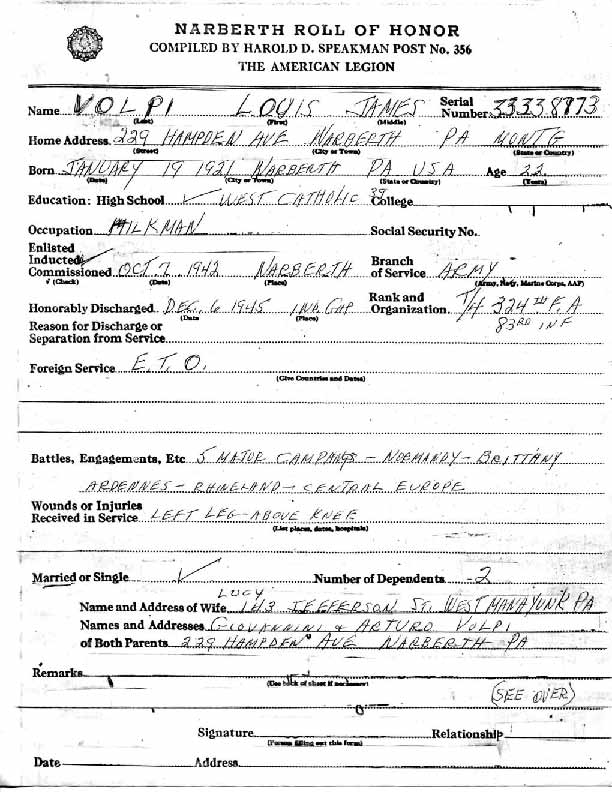 NARBERTH ROLL OF HONOR
COMPILED BY HAROLD D. SPEAKMAN POST No. 356
THE AMERICAN LEGION
Name VOLPI LOUIS JAMES Serial Number 33338773
(Last) (First) (Middle)
Home Address 229 HAMPDEN AVE NARBERTH PA MONTG
(Street) (City or Town) (State or Country)
Born JANUARY 19 1921 NARBERTH PA USA Age 22
(Date) (City or Town) (State or Country) (Years)
Education: High School ✓ WEST CATHOLIC 39 College
Occupation MILKMAN Social Security No.
Enlisted
Inducted ✓ Branch
Commissioned OCT. 7 1942 NARBERTH of Service ARMY
√ (Check) (Date) (Place) (Army, Navy, Marine Corps, AAF)
Honorably Discharged DEC. 6 1945 IND. GAP Rank and Organization T/4 324TH F.A
(Date (Place) 83RD INF
Reason for Discharge or
Separation from Service
Foreign Service E.T.O.
(Give Countries and Dates)
Battles, Engagements, Etc 5 MAJOR CAMPANGS - NORMANDY - BRITTANY
ARDENNES - RHINELAND - CENTRAL EUROPE
Wounds or Injuries
Received in Service LEFT LEG - ABOVE KNEE
(List places, dates, hospitals)
Married or Single ✓ Number of Dependents 2
LUCY
Name and Address of Wife 143 JEFFERSON ST. WEST MANAYUNK PA
Names and Addresses GIOVANNINI & ARTURO VOLPI
of Both Parents 229 HAMPDEN AVE NARBERTH PA
Remarks
(Use back of sheet if necessary)
(SEE OVER)
Signature Relationship
(Person filling out this form)
Date Address